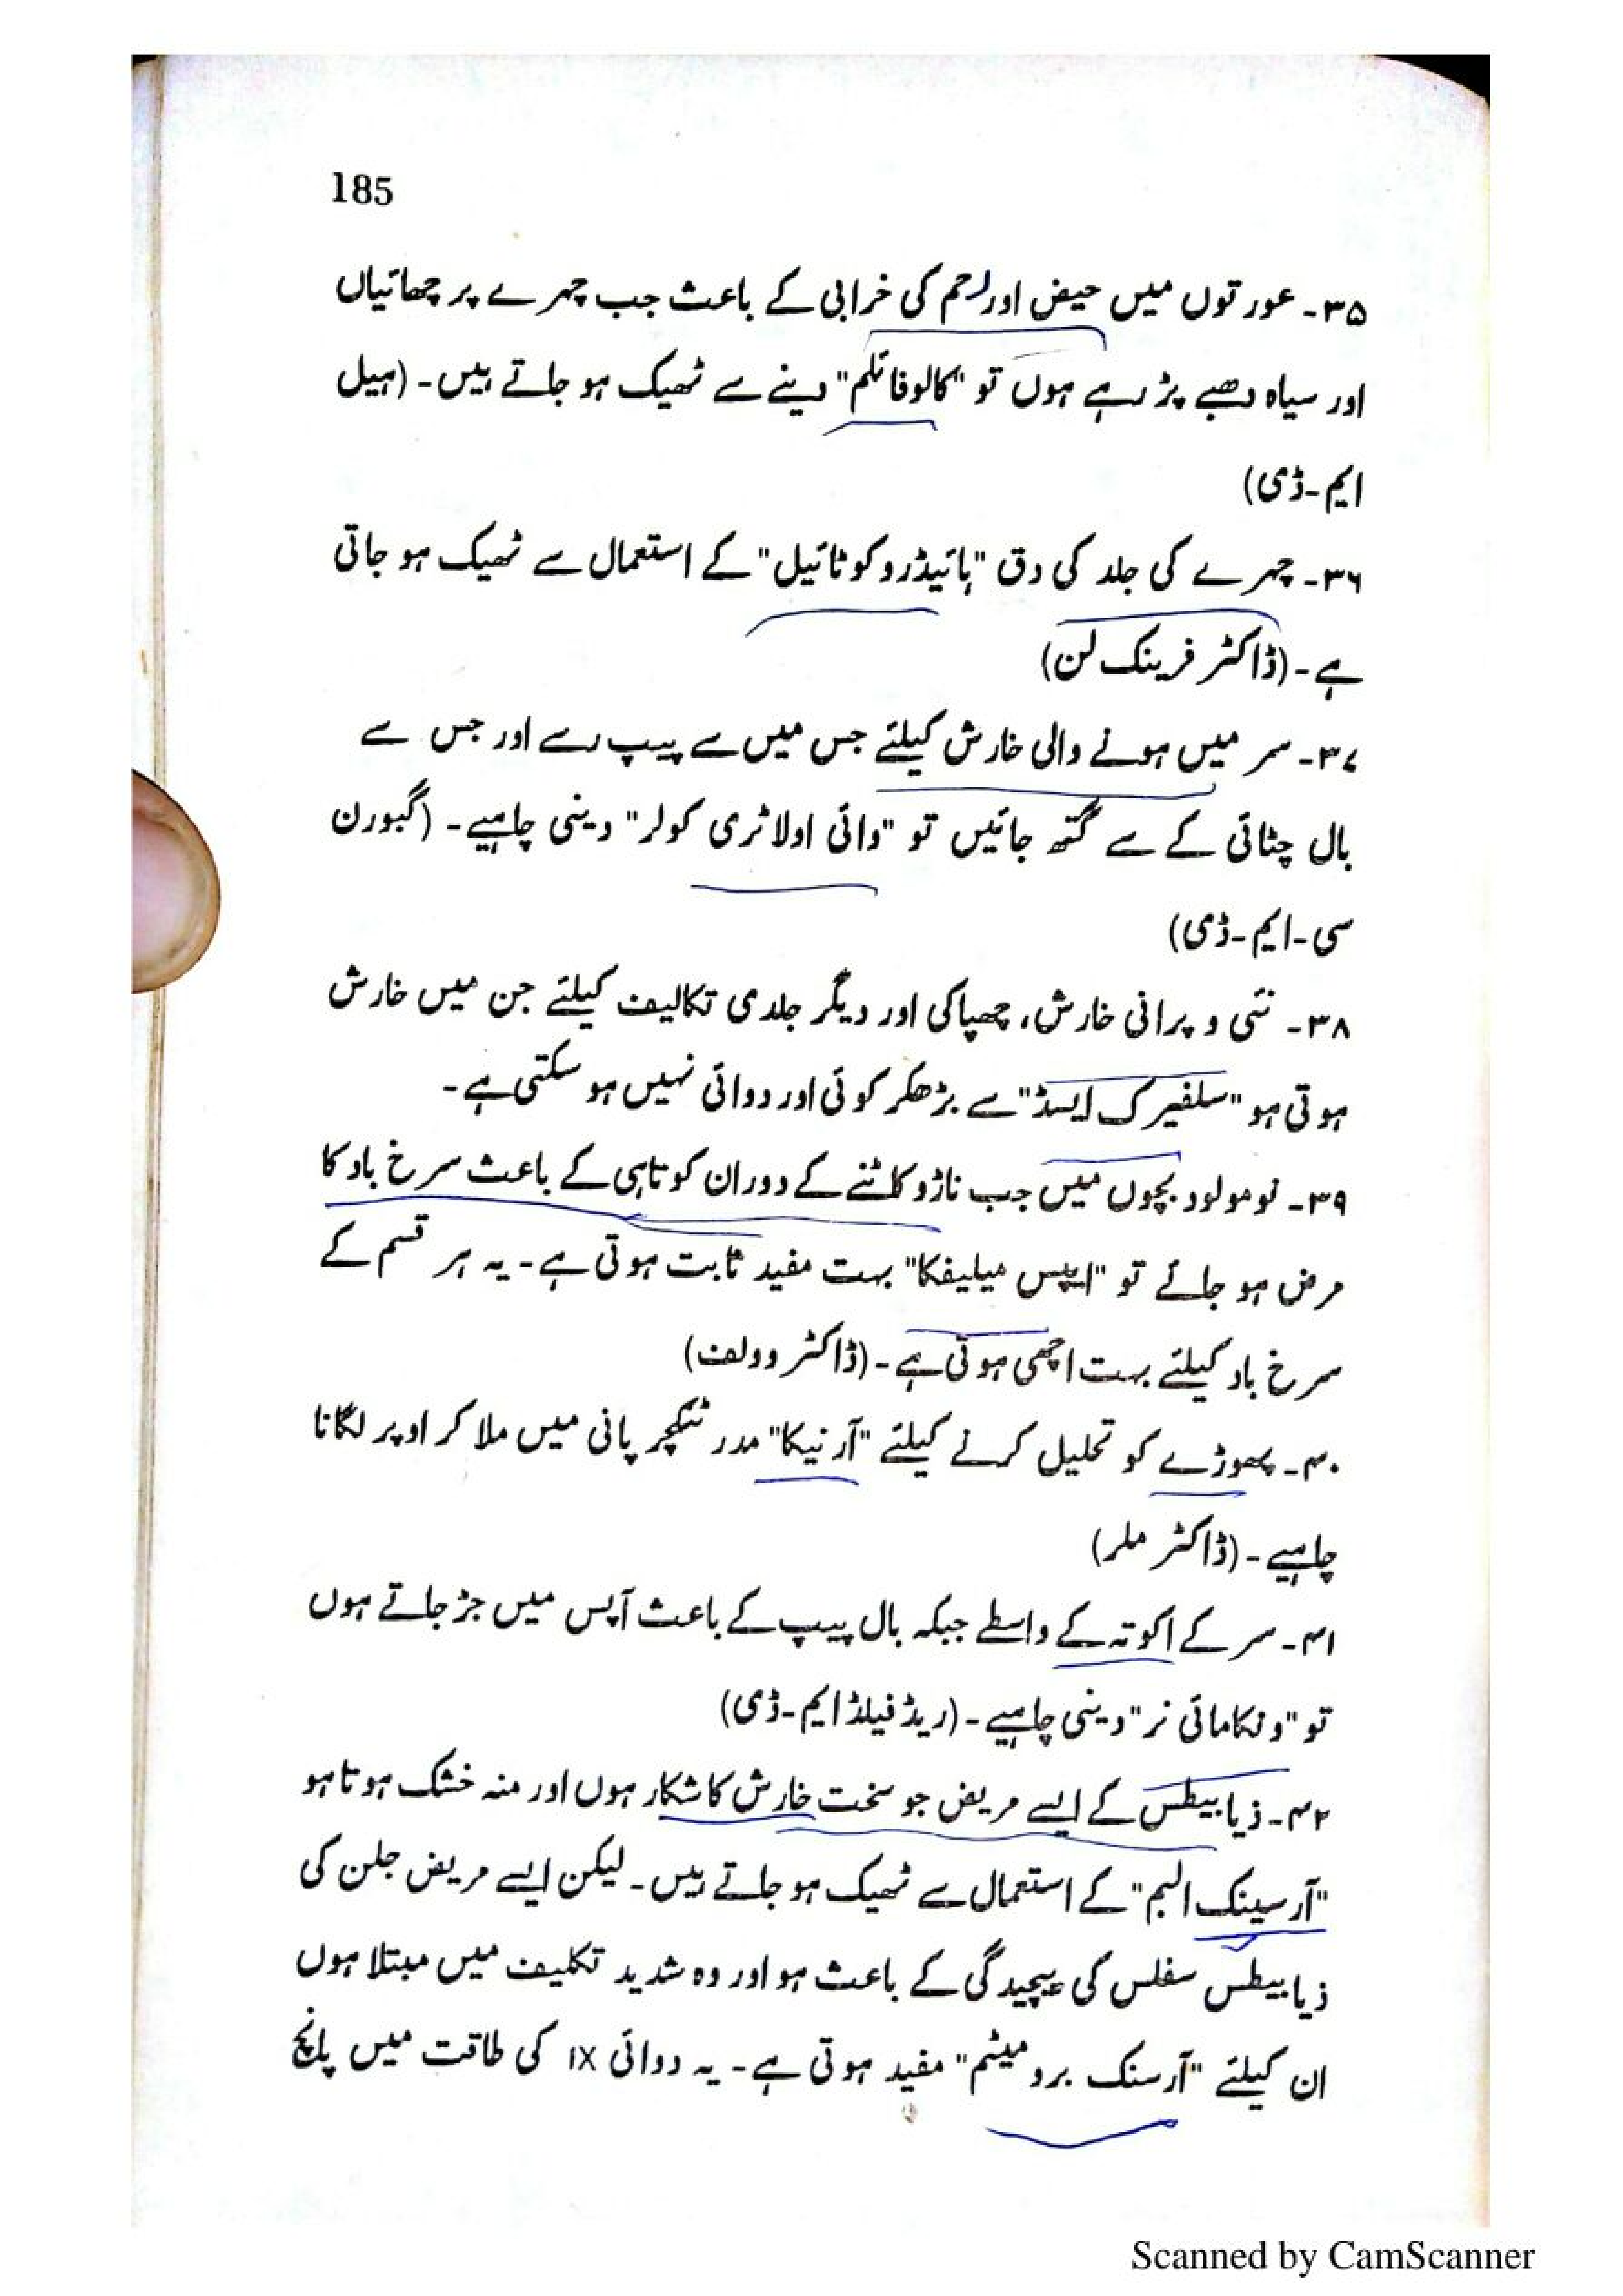 185
۳۵۔ عورتوں میں حیض اور رحم کی خرابی کے باعث جب چہرے پر چھائیاں
اور سیاہ دھبے پڑ رہے ہوں تو "کالوفائلم" دینے سے ٹھیک ہو جاتے ہیں۔ (ہیل
ایم۔ڈی)
۳۶۔ چہرے کی جلد کی دق "ہائیڈروکوٹائیل" کے استعمال سے ٹھیک ہو جاتی
ہے۔ (ڈاکٹر فرینک لن)
۳۷۔ سر میں ہونے والی خارش کیلئے جس میں سے پیپ رسے اور جس سے
بال چٹائی کے سے گتھ جائیں تو "وائی اولا ٹری کولر" دینی چاہیے۔ (گبورن
سی۔ایم۔ڈی)
۳۸۔ نئی و پرانی خارش، چھپاکی اور دیگر جلدی تکالیف کیلئے جن میں خارش
ہوتی ہو "سلفیرک ایسڈ" سے بڑھکر کوئی اور دوائی نہیں ہو سکتی ہے۔
۳۹۔ نومولود بچوں میں جب ناڑو کاٹنے کے دوران کوتاہی کے باعث سرخ باد کا
مرض ہو جائے تو "ایپس میلیفکا" بہت مفید ثابت ہوتی ہے۔ یہ ہر قسم کے
سرخ باد کیلئے بہت اچھی ہوتی ہے۔ (ڈاکٹر وولف)
۴۰۔ پھوڑے کو تحلیل کرنے کیلئے "آرنیکا" مدر ٹنکچر پانی میں ملا کر اوپر لگانا
چاہیے۔ (ڈاکٹر ملر)
۴۱۔ سر کے اکوتہ کے واسطے جبکہ بال پیپ کے باعث آپس میں جڑ جاتے ہوں
تو "ونکامائی نر" دینی چاہیے۔ (ریڈ فیلڈ ایم۔ڈی)
۴۲۔ ذیابیطس کے ایسے مریض جو سخت خارش کا شکار ہوں اور منہ خشک ہوتا ہو
"آرسینک البم" کے استعمال سے ٹھیک ہو جاتے ہیں۔ لیکن ایسے مریض جلن کی
ذیابیطس سفلس کی پیچیدگی کے باعث ہو اور وہ شدید تکلیف میں مبتلا ہوں
ان کیلئے "آرسنک برومیٹم" مفید ہوتی ہے۔ یہ دوائی IX کی طاقت میں پانچ
Scanned by CamScanner